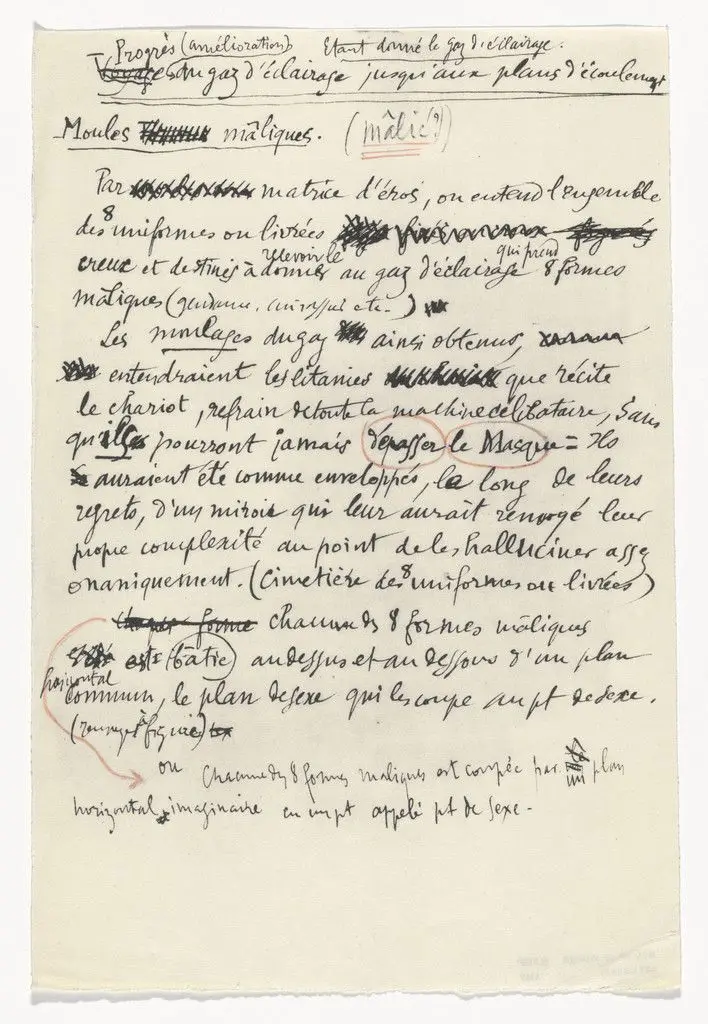 Progrès (amélioration) Etant donné le gaz d'éclairage.
Voyage du gaz d'éclairage jusqu'aux plans d'écoulement
Moules mâliques. (mâlic?)
Par matrice d'éros, on entend l'ensemble
des 8 uniformes ou livrées
creux et destinés à recevoir le donner au gaz d'éclairage qui prend 8 formes
mâliques (gendarme, cuirassier etc.)
Les moulages du gaz ainsi obtenus,
entendraient les litanies que récite
le chariot, refrain de toute la machine célibataire, Sans
qu'ils pourront jamais dépasser le Masque = Ils
auraient été comme enveloppés, le long de leurs
regrets, d'un miroir qui leur aurait renvoyé leur
propre complexité au point de les halluciner assez
onaniquement. (Cimetière des 8 uniformes ou livrées)
Chaque forme chacune des 8 formes mâliques
est bâtie au dessus et au dessous d'un plan
horizontal
commun, le plan de sexe qui les coupe au pt de sexe.
(renvoyer à figure)
ou Chacune des 8 formes maliques est coupée par un plan
horizontal imaginaire en un pt appelé pt de sexe.